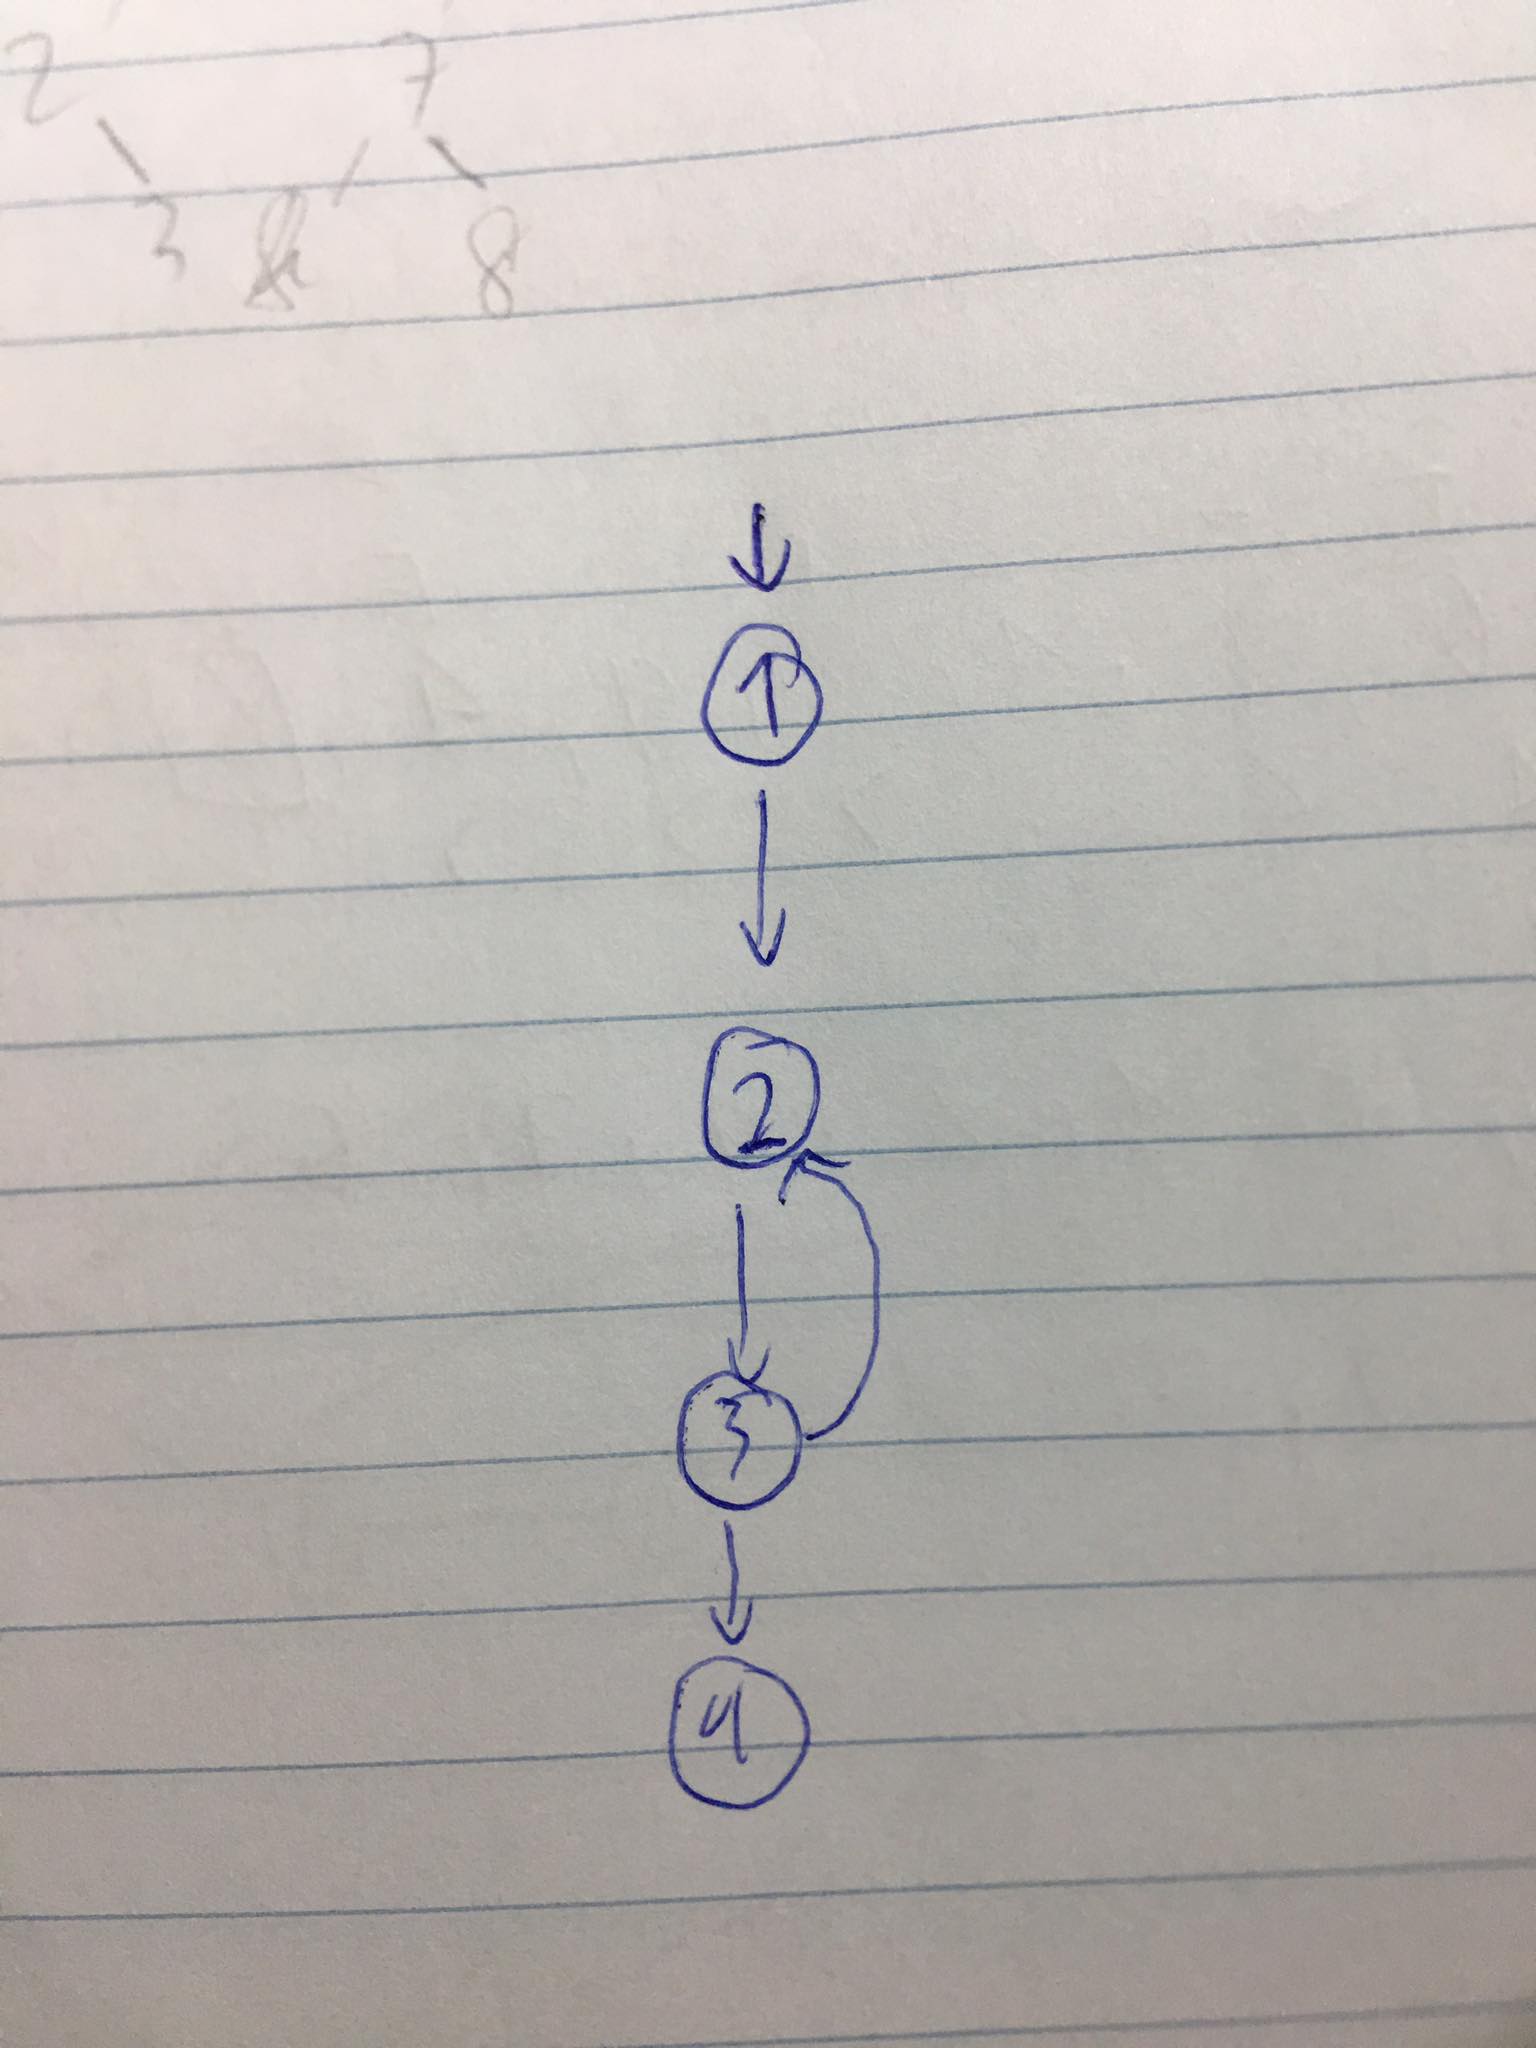 2 7
3 8
1
2
3
4